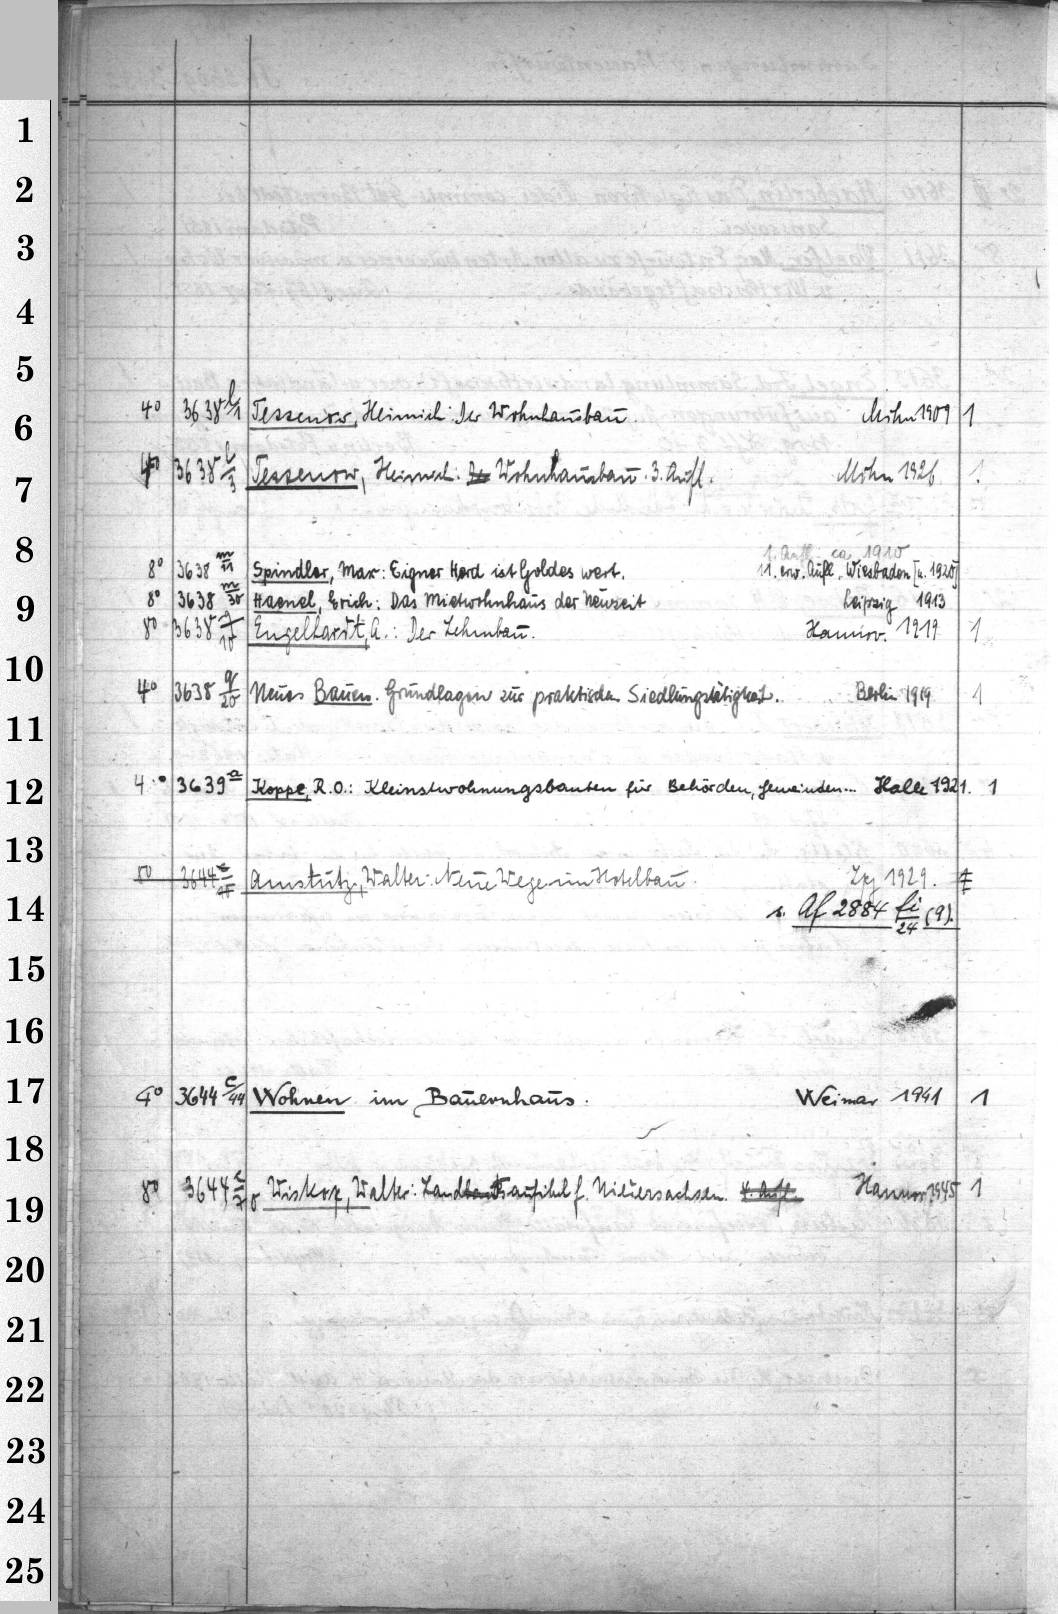 1
2
3
4
5
6
4° 3638 l/1 Tessenow, Heinrich: Der Wohnhausbau. Mchn 1909 1
7
4° 3638 l/3 Tessenow, Heinrich: Der Wohnhausbau. 3. Aufl. Mchn 1926 1
8
1. Aufl. ca 1910
8° 3638 m/11 Spindler, Max: Eigner Herd ist Goldes wert. 11. erw. Aufl. Wiesbaden [u. 1920]
9
8° 3638 m/30 Haenel, Erich: Das Mietwohnhaus der Neuzeit Leipzig 1913
8° 3638 Engelhardt, A.: Der Lehmbau. Hannov. 1919 1
10
4° 3638 q/20 Neues Bauen. Grundlagen zur praktischen Siedlungstätigkeit. Berlin 1919 1
11
12
4° 3639 a Koppe, R.O.: Kleinstwohnungsbauten für Behörden, Gemeinden... Halle 1921. 1
13
8° 3644 Amstutz, Walter: Neue Wege im Hotelbau. Zch 1929. 1
14
s. Af 2884 fi/24 (9).
15
16
17
4° 3644 c/44 Wohnen im Bauernhaus. Weimar 1941 1
18
19
8° 3644 Wiskop, Walter: Landbaufibel f. Niedersachsen. 4. Aufl. Hannov. 1945 1
20
21
22
23
24
25